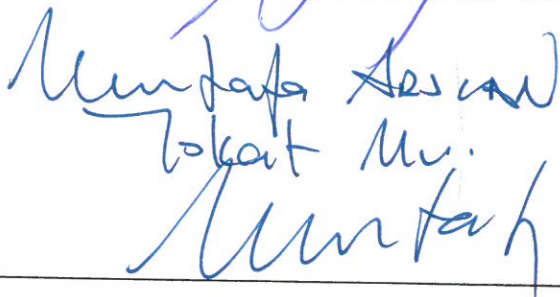 Mustafa Arslan
Tokat Mv.
Mustafa